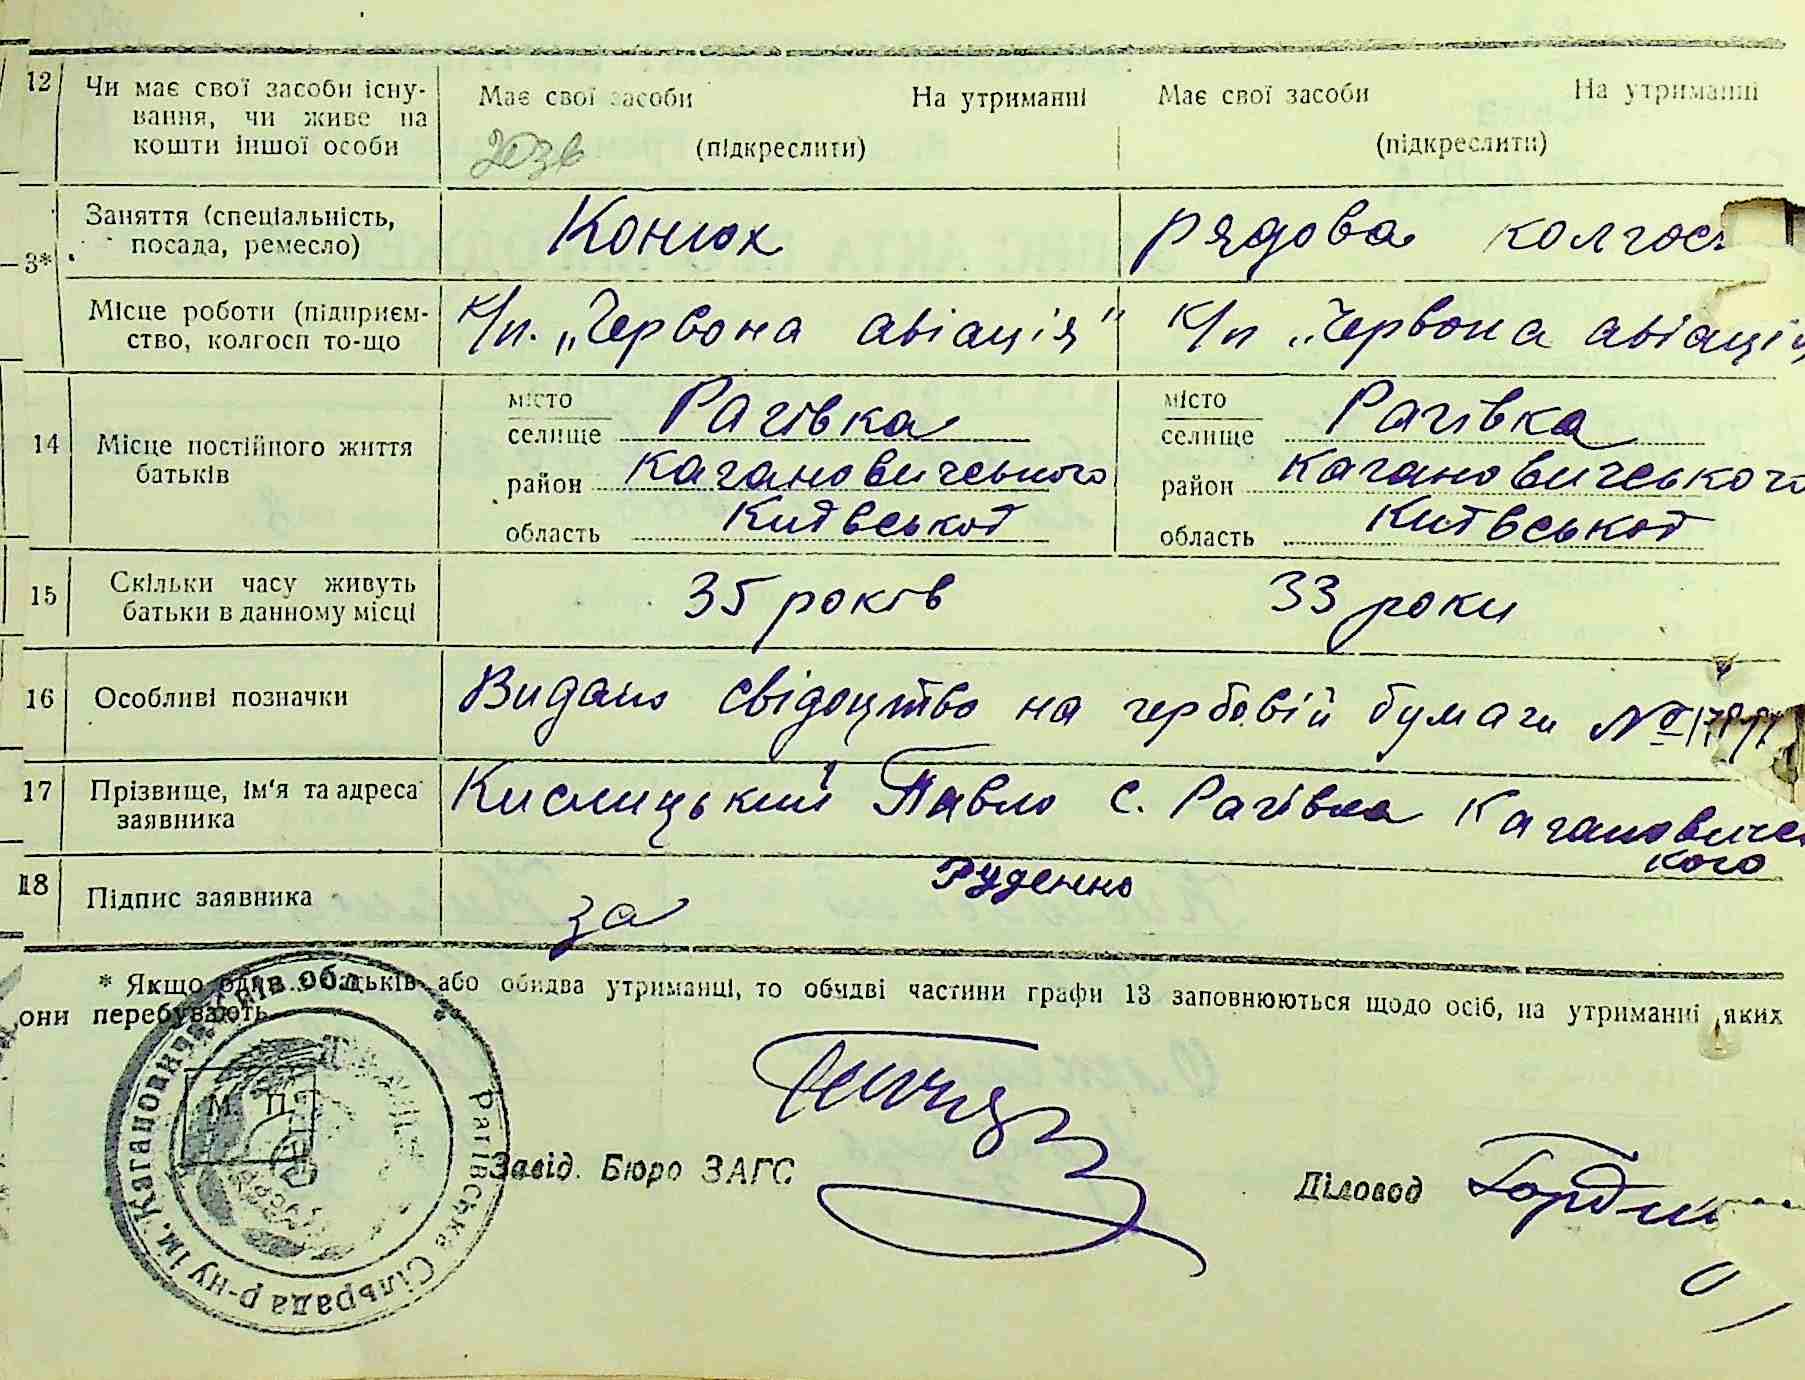 12 Чи має свої засоби існу- Має свої засоби На утриманні Має свої засоби На утриманні
вання, чи живе на
кошти іншої особи (підкреслити) (підкреслити)
Заняття (спеціальність, Конюх рядова колгосп
посада, ремесло)
3*
Місце роботи (підприєм- к/п. „Червона авіація" к/п „Червона авіація
ство, колгосп то-що
місто Рагівка місто Рагівка
14 Місце постійного життя селище селище
батьків район Кагановичського район Кагановичського
область Київської область Київської
15 Скільки часу живуть 35 років 33 роки
батьки в данному місці
16 Особливі позначки Видано свідоцтво на гербовій бумаги №
17 Прізвище, ім'я та адреса Кислицький Павло с. Рагівка Кагановичсь
заявника кого
18 Підпис заявника за Руденко
* Якщо один батьків або обидва утриманці, то обидві частини графи 13 заповнюються щодо осіб, на утриманні яких
они перебувають
М. П.
Рагівська Сільрада р-ну ім. Кагановича Київ. обл.
Завід. Бюро ЗАГС Діловод